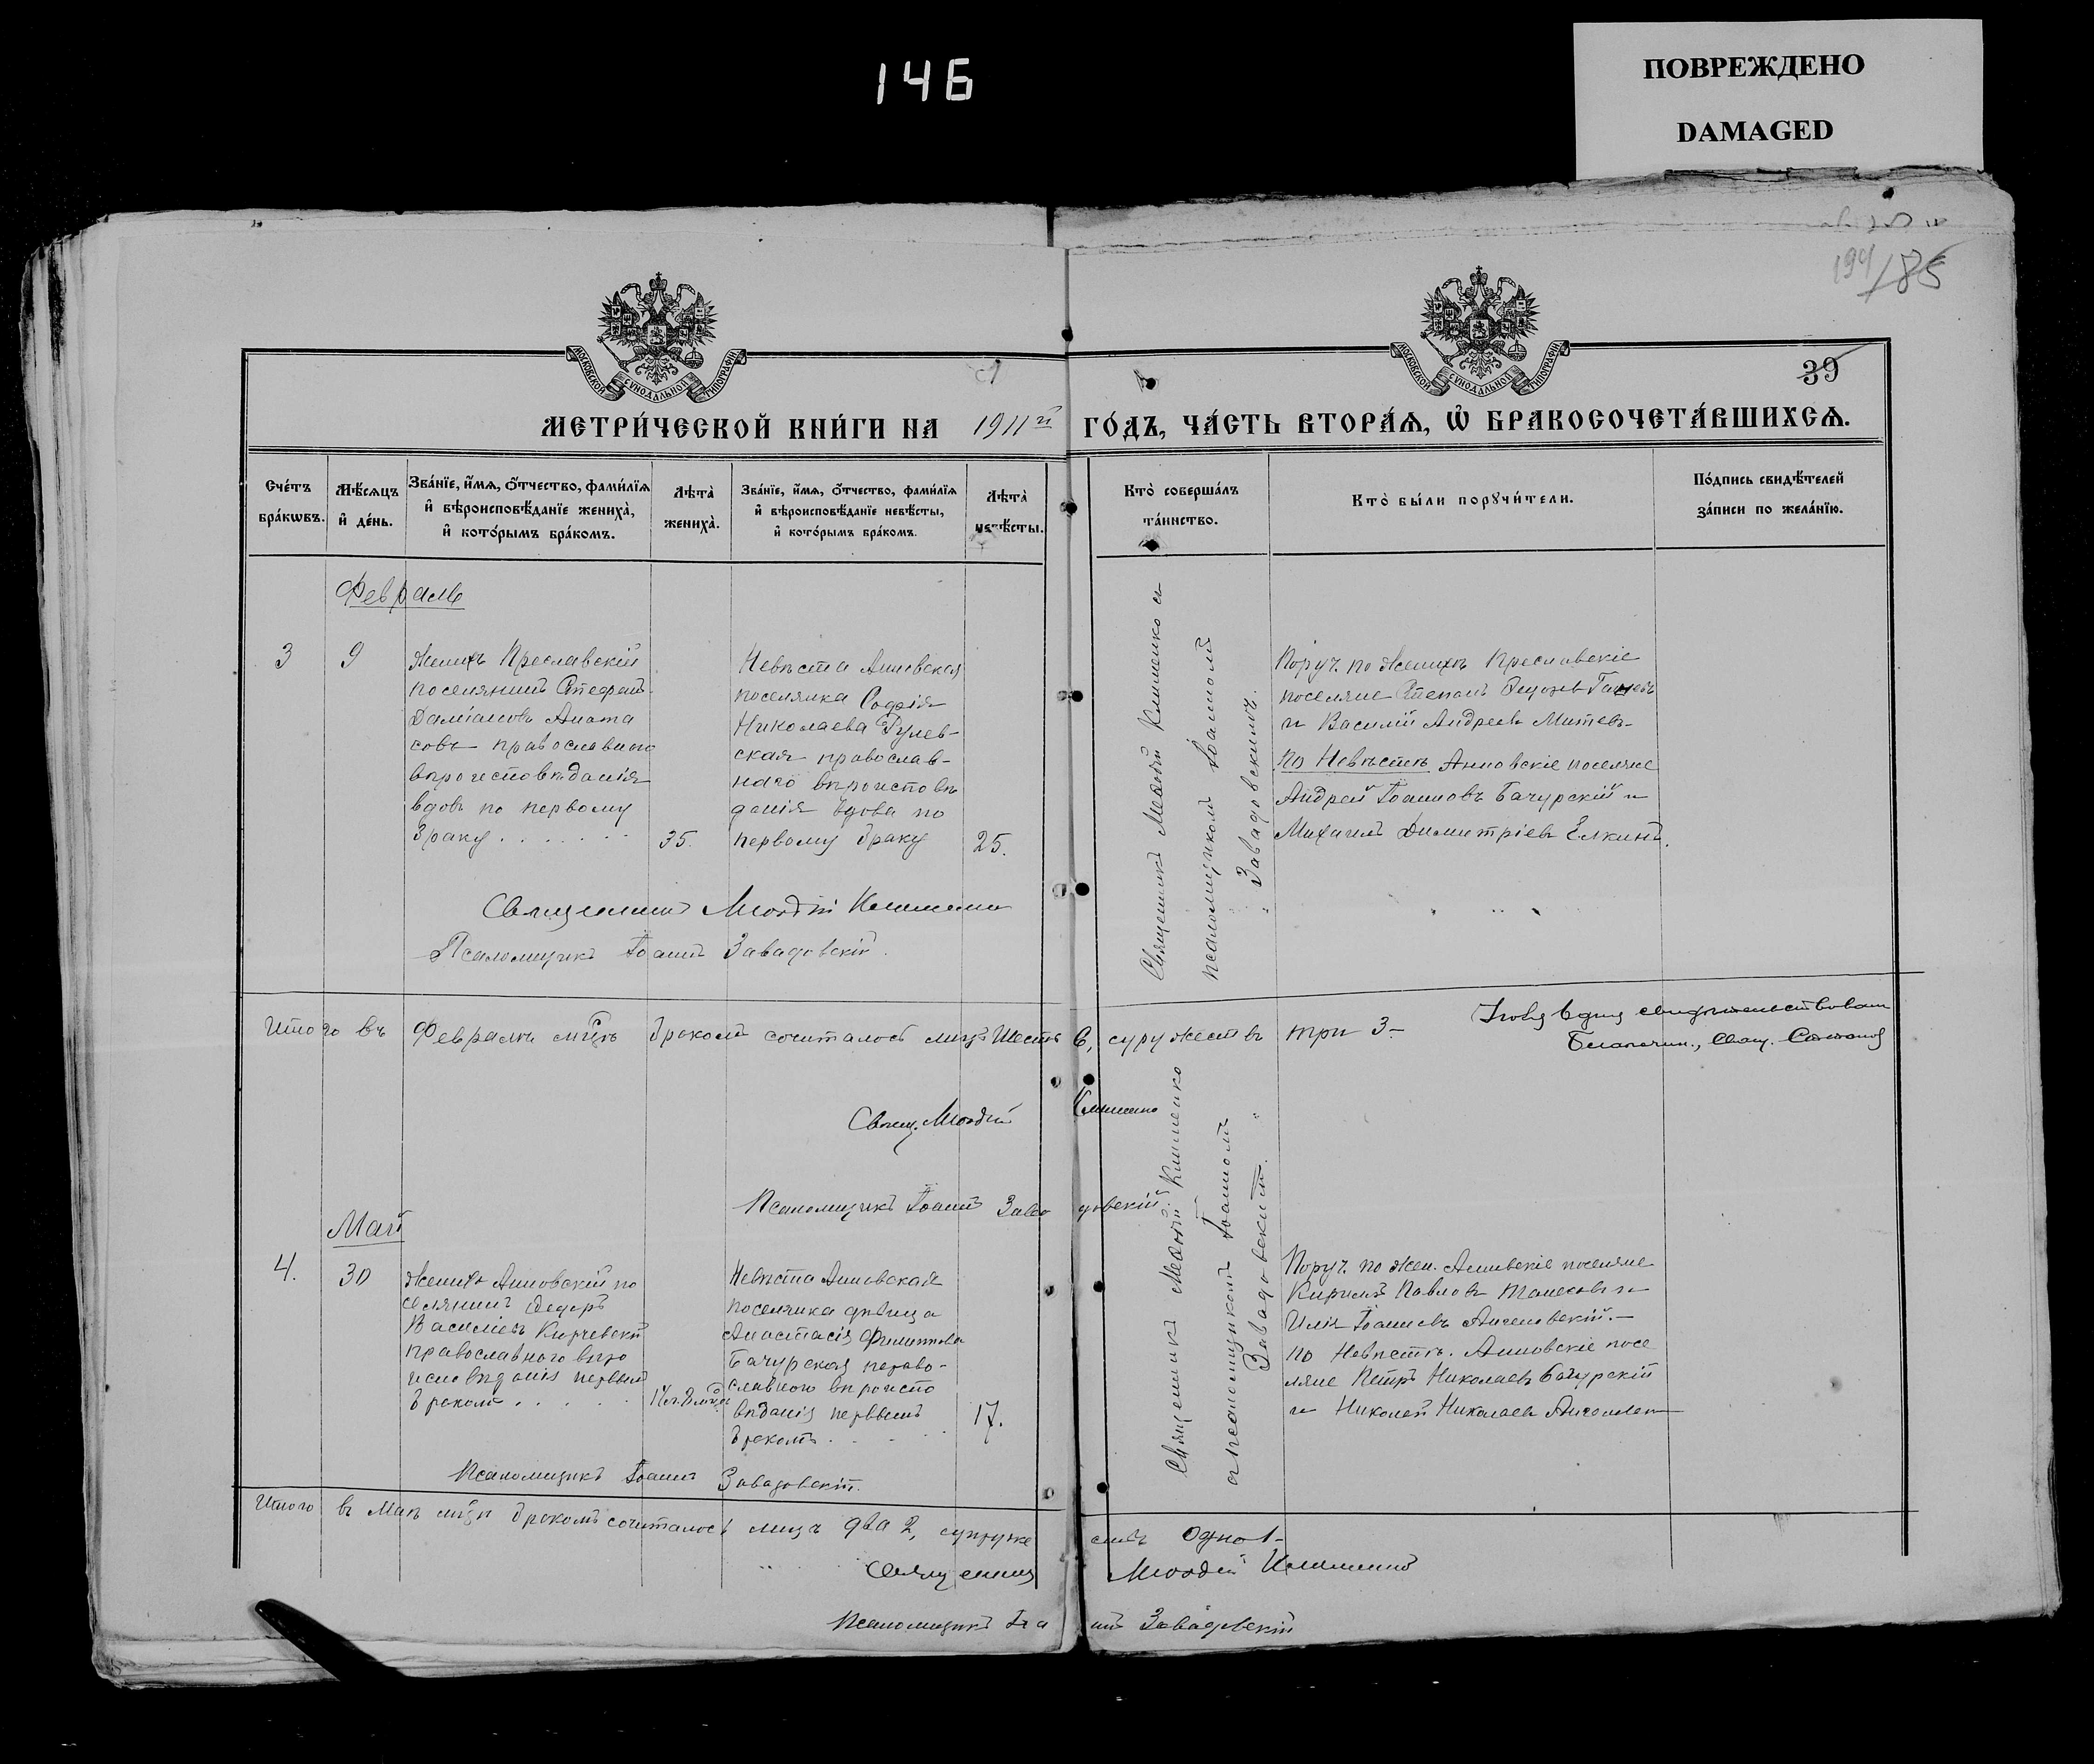 146
ПОВРЕЖДЕНО
DAMAGED
194/185
39
МОСКОВСКОЙ СУНОДАЛЬНОЙ ТИПОГРАФІИ
МОСКОВСКОЙ СУНОДАЛЬНОЙ ТИПОГРАФІИ
МЕТРИ́ЧЕСКОЙ КНИ́ГИ НА 1911й ГО́ДЪ, ЧА́СТЬ ВТОРА́Ѧ, Ѡ БРАКОСОЧЕТА́ВШИХСѦ.
Сче́тъ
бра́кѡвъ.
Мѣ́сѧцъ
и҆ де́нь.
Зва́нїе, и҆́мѧ, ѻ҆́тчество, фами́лїѧ
и҆ вѣроисповѣ́данїе жениха̀,
и҆ кото́рымъ бра́комъ.
Лѣта̀
жениха̀.
Зва́нїе, и҆́мѧ, ѻ҆́тчество, фами́лїѧ
и҆ вѣроисповѣ́данїе невѣ́сты,
и҆ кото́рымъ бра́комъ.
Лѣта̀
невѣ́сты.
Кто̀ соверша́лъ
та́инство.
Кто̀ бы́ли порꙋчи́тели.
По́дпись свидѣ́телей
за́писи по жела́нїю.
Февраль
3
9
Женихъ Преславскій
поселянинъ Стефанъ
Даміановъ Аната
совъ православнаго
вѣроисповѣданія
вдовъ по первому
браку . . . . . .
35.
Невѣста Анновская
поселянка Софія
Николаева Гулев-
ская православ-
наго вѣроисповѣ
данія вдова по
первому браку
25.
Священникъ Меѳодій Клименко съ
псаломщикомъ Іоанномъ
Завадовскимъ.
Поруч. по женихѣ Преславскіе
поселяне Степанъ Ганевъ
и Василій Андреевъ Митевъ-
по Невѣстѣ Анновскіе поселяне
Андрей Іоанновъ Бачурскій и
Михаилъ Димитріевъ Елкинъ.
Священникъ Меѳодій Клименко
Псаломщикъ Іоаннъ Завадовскій.
Итого въ Февралѣ мцѣ бракомъ сочиталось лицъ Шесть 6, супружествъ три 3-
Благочин., Свящ.
Свящ. Меѳодій Клименко
Псаломщикъ Іоаннъ Завадовскій
Май
4.
30
Женихъ Анновскій по
селянинъ Ѳедоръ
Василіевъ Кирчевскій
православнаго вѣро
исповѣданія первымъ
бракомъ . . . . .
Невѣста Анновская
поселянка дѣвица
Анастасія Филиппова
Бачурская право-
славнаго вѣроиспо
вѣданія первымъ
бракомъ . . . .
17.
Священникъ Меѳодій Клименко
съ псаломщикомъ Іоанномъ
Завадовскимъ.
Поруч. по жен. Анновскіе поселяне
Кириллъ Павловъ Танасовъ и
Илія Іоанновъ Ангеловскій.-
по Невѣстѣ. Анновскіе посе
ляне Петръ Николаевъ Бачурскій
и Николай Николаевъ
Псаломщикъ Іоаннъ Завадовскій.
Итого въ Маѣ мцѣ бракомъ сочиталось лицъ два 2, супруже ствъ одно 1-
Священникъ Меѳодій Клименко
Псаломщикъ Іоаннъ Завадовскій